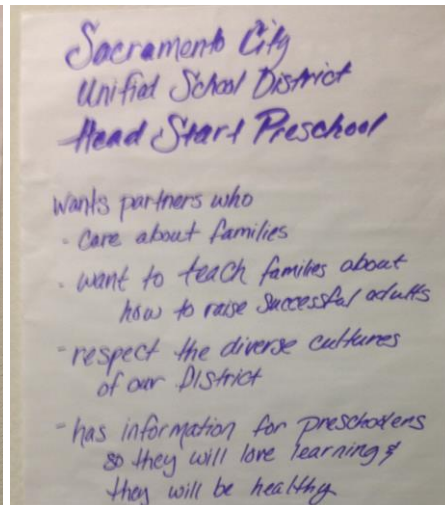 Sacramento City
Unified School District
Head Start Preschool
wants partners who
- care about families
- want to teach families about
how to raise successful adults
- respect the diverse cultures
of our District
- has information for preschoolers
so they will love learning &
they will be healthy